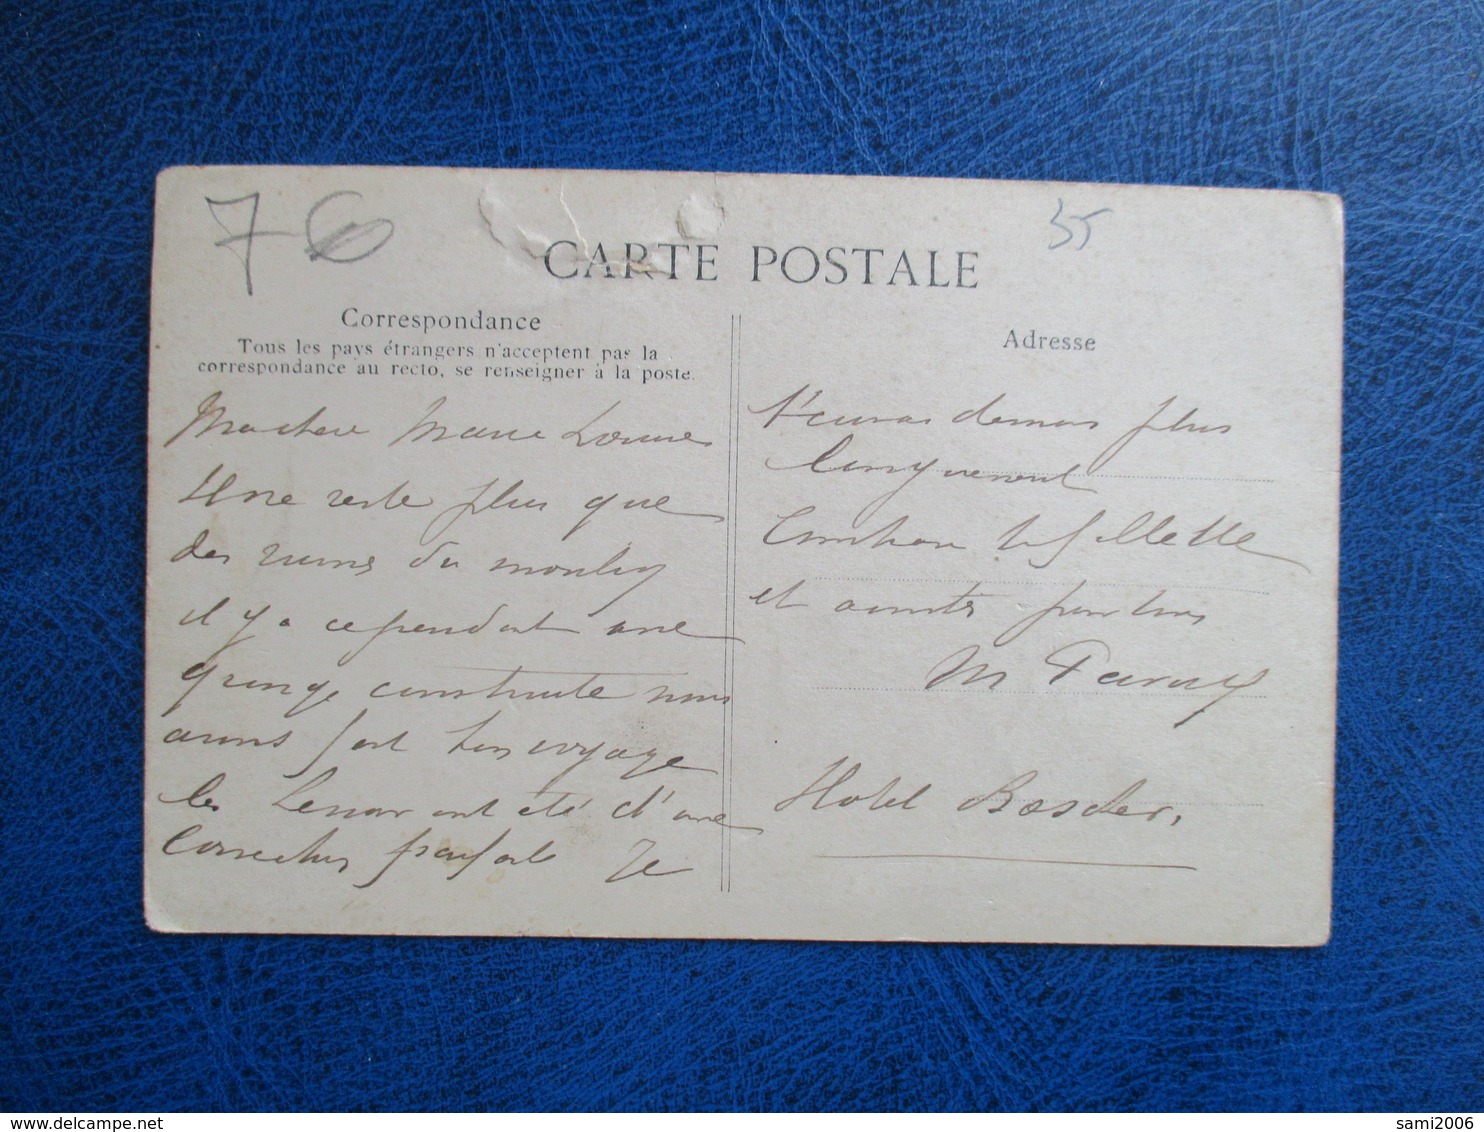 76
35
CARTE POSTALE
Correspondance
Tous les pays étrangers n'acceptent pas la
correspondance au recto, se renseigner à la poste.
Ma chère Marie Louise
Il ne reste plus que
des ruines du moulin
il y a cependant une
grange construite nous
avons fait bon voyage
les ont été d'une
correction parfaite Je
Adresse
t'écrirai demain plus
longuement
la fillette
et amitiés pour tous
M
Hotel
sami2006